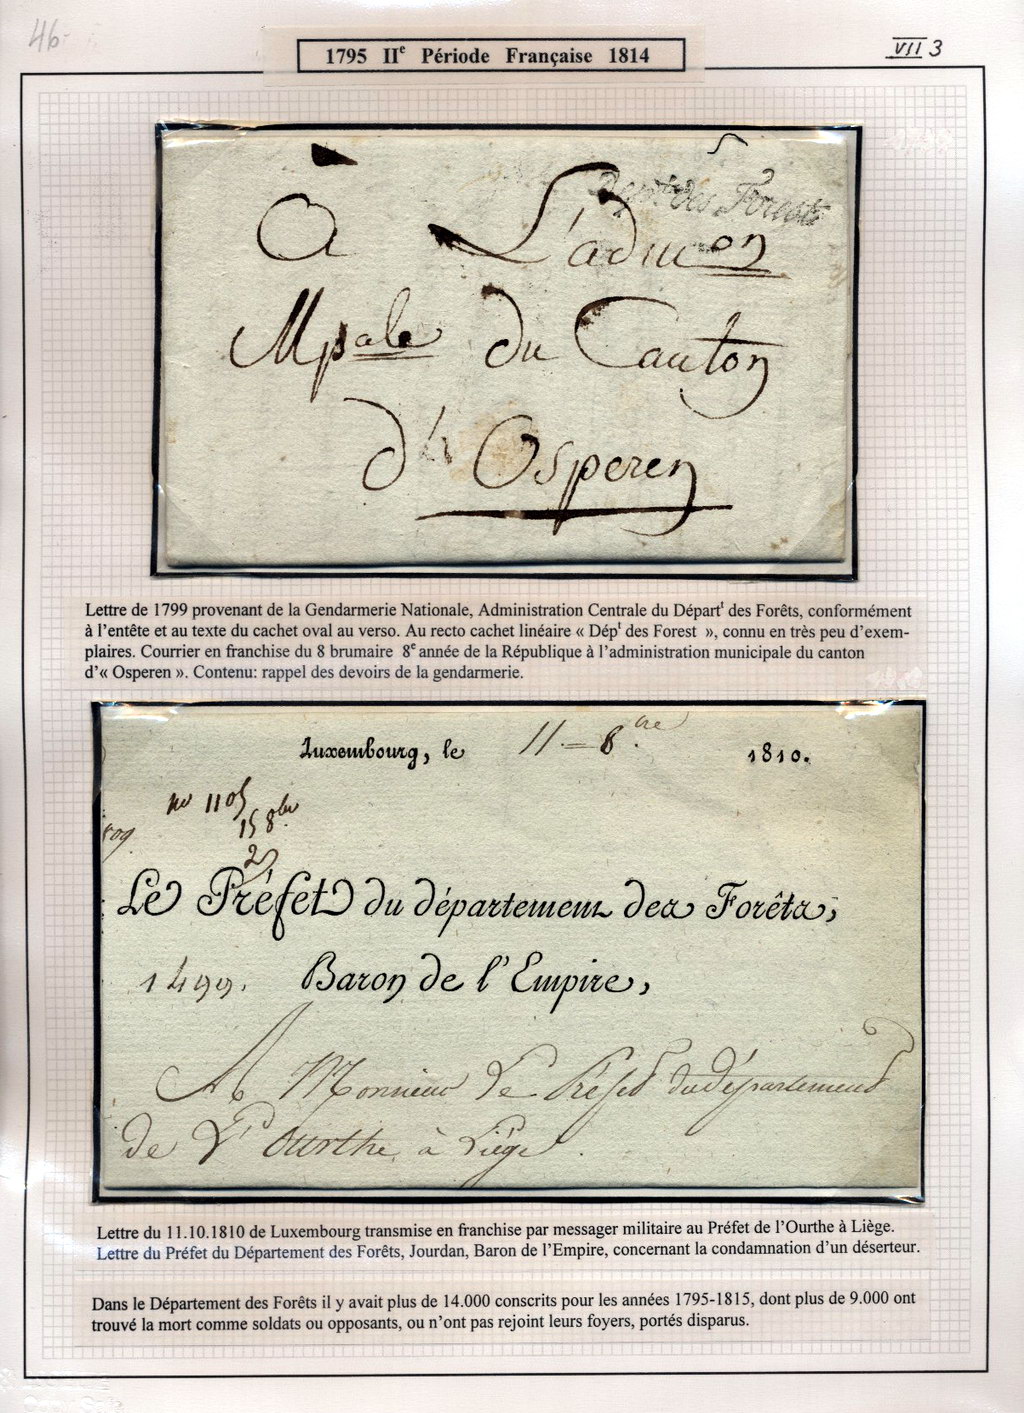 46-
1795 IIe Période Française 1814
VII 3
Dept des Forest
À L'admon
Mpale du Canton
d' Osperen
Lettre de 1799 provenant de la Gendarmerie Nationale, Administration Centrale du Départt des Forêts, conformément
à l'entête et au texte du cachet oval au verso. Au recto cachet linéaire « Dépt des Forest », connu en très peu d'exem-
plaires. Courrier en franchise du 8 brumaire 8e année de la République à l'administration municipale du canton
d'« Osperen ». Contenu: rappel des devoirs de la gendarmerie.
Luxembourg, le 11.= 8.bre 1810.
no 1105
15 8bre
2
Le Préfet du département des Forêts,
1499. Baron de l'Empire,
A Monsieur Le Préfet du département
de L'Ourthe à Liège.
Lettre du 11.10.1810 de Luxembourg transmise en franchise par messager militaire au Préfet de l'Ourthe à Liège.
Lettre du Préfet du Département des Forêts, Jourdan, Baron de l'Empire, concernant la condamnation d'un déserteur.
Dans le Département des Forêts il y avait plus de 14.000 conscrits pour les années 1795-1815, dont plus de 9.000 ont
trouvé la mort comme soldats ou opposants, ou n'ont pas rejoint leurs foyers, portés disparus.